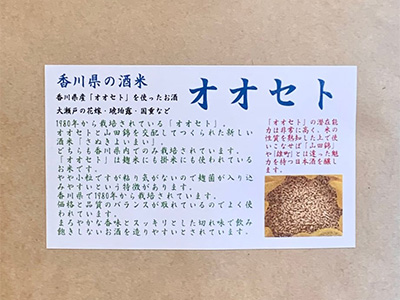 香川県の酒米
香川県産「オオセト」を使ったお酒
大瀬戸の花嫁・琥珀露・国重など
オオセト
1980年から栽培されている「オオセト」。
オオセトと山田錦を交配してつくられた新しい
酒米「さぬきよいまい」。
どちらも香川県内でのみ栽培されています。
「オオセト」は麹米にも掛米にも使われている
お米です。
やや小粒ですが粘り気がないので麹菌が入り込
みやすいという特徴があります。
香川県で1980年から栽培されています。
価格と品質のバランスが取れているのでよく使
われています。
まろやかな香味とスッキリとした切れ味で飲み
飽きしないお酒を造りやすいとされています。
「オオセト」の潜在能
力は非常に高く、米の
性質を熟知した上で使
いこなせば「山田錦」
や「雄町」とは違った魅
力を持つ日本酒を醸し
ます。